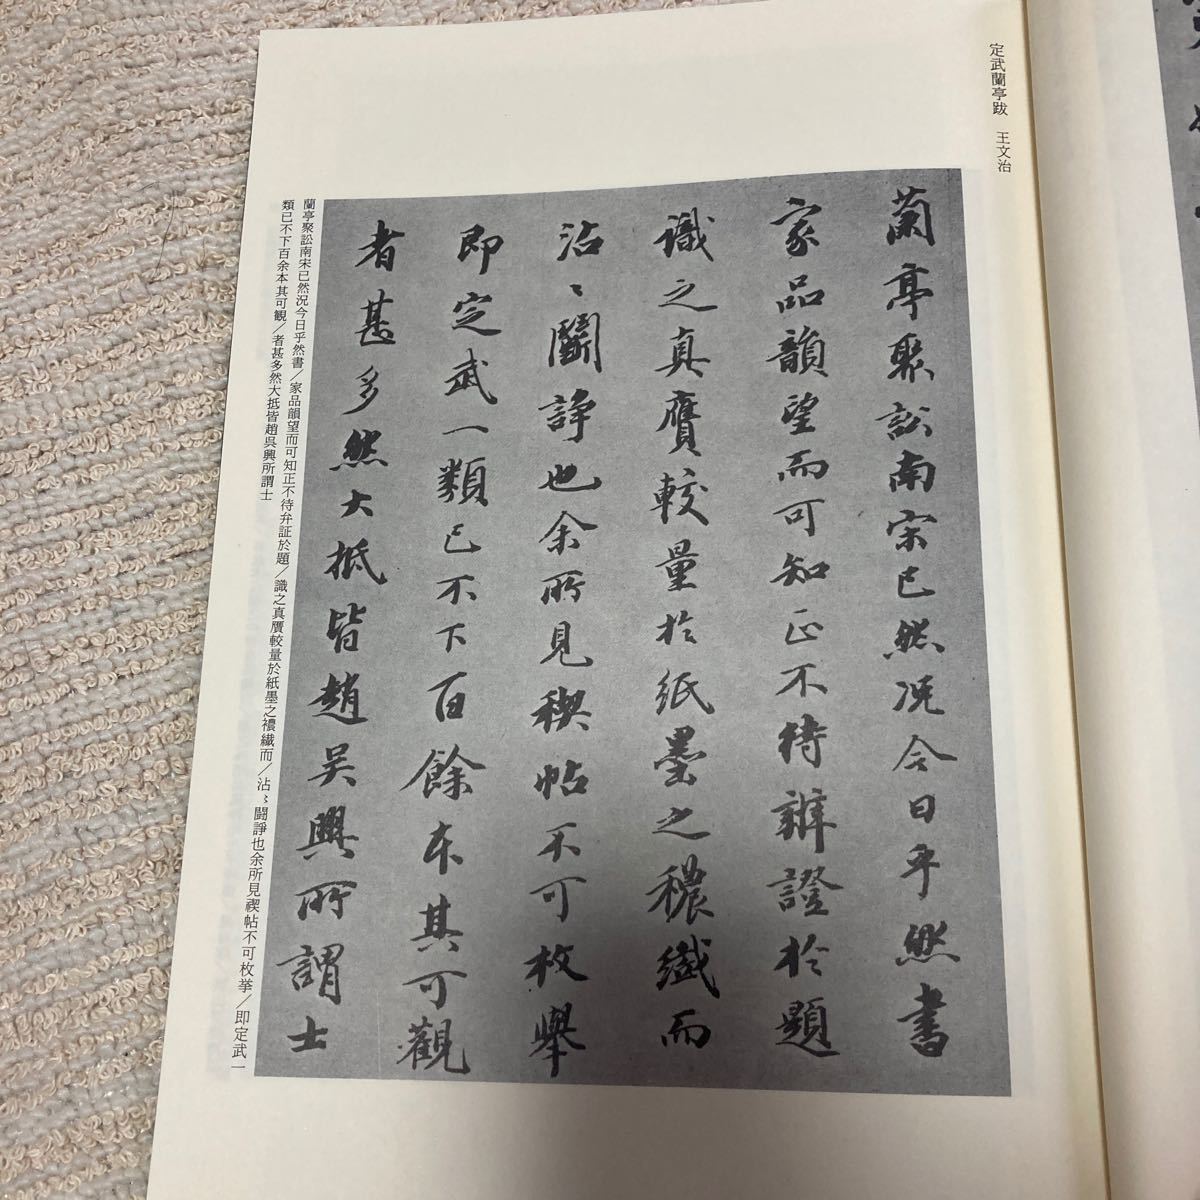 定武蘭亭跋　王文治
蘭亭聚訟南宋已然况今日乎然書
家品韻望而可知正不待辨證於題
識之真贋較量於紙墨之穠纖而
沾〻鬭諍也余所見禊帖不可枚舉
即定武一類已不下百餘本其可觀
者甚多然大抵皆趙吳興所謂士
蘭亭聚訟南宋已然況今日乎然書／家品韻望而可知正不待弁証於題／識之真贋較量於紙墨之襛繊而／沾〻闘諍也余所見禊帖不可枚挙／即定武一
類已不下百余本其可観／者甚多然大抵皆趙呉興所謂士